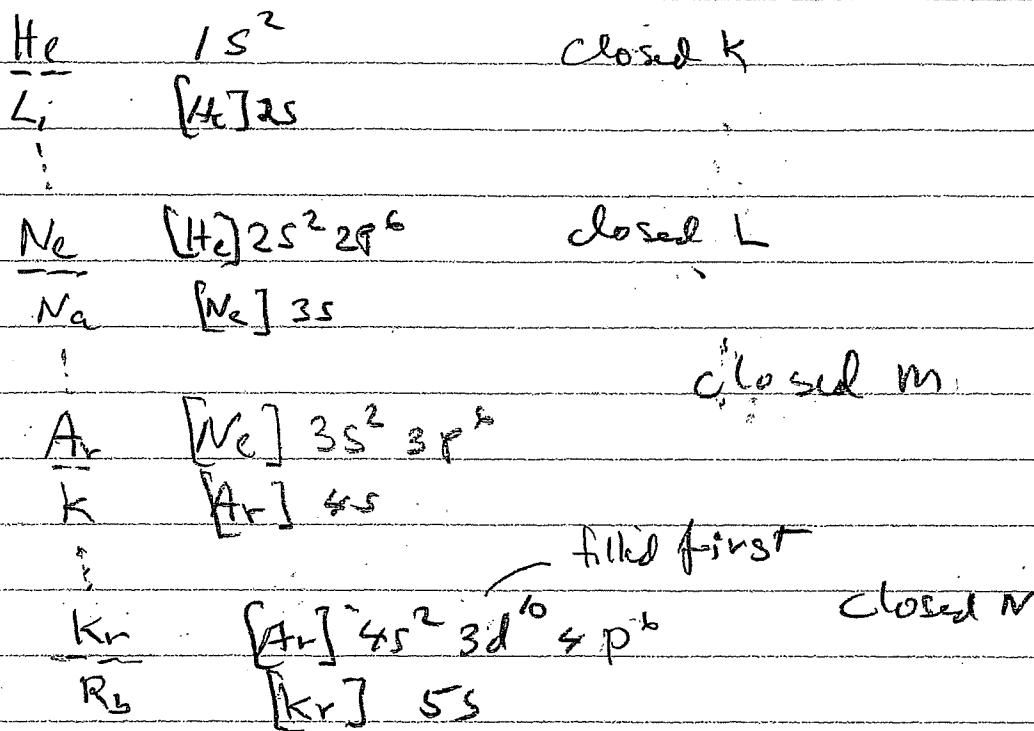 He 1s² closed K
Li [He] 2s
Ne [He] 2s² 2p⁶ closed L
Na [Ne] 3s
closed M
Ar [Ne] 3s² 3p⁶
K [Ar] 4s
filled first
Kr [Ar] 4s² 3d¹⁰ 4p⁶ closed N
Rb [Kr] 5s